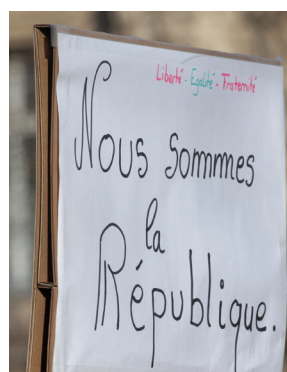 Liberté - Egalité - Fraternité
Nous Sommes
la
République.